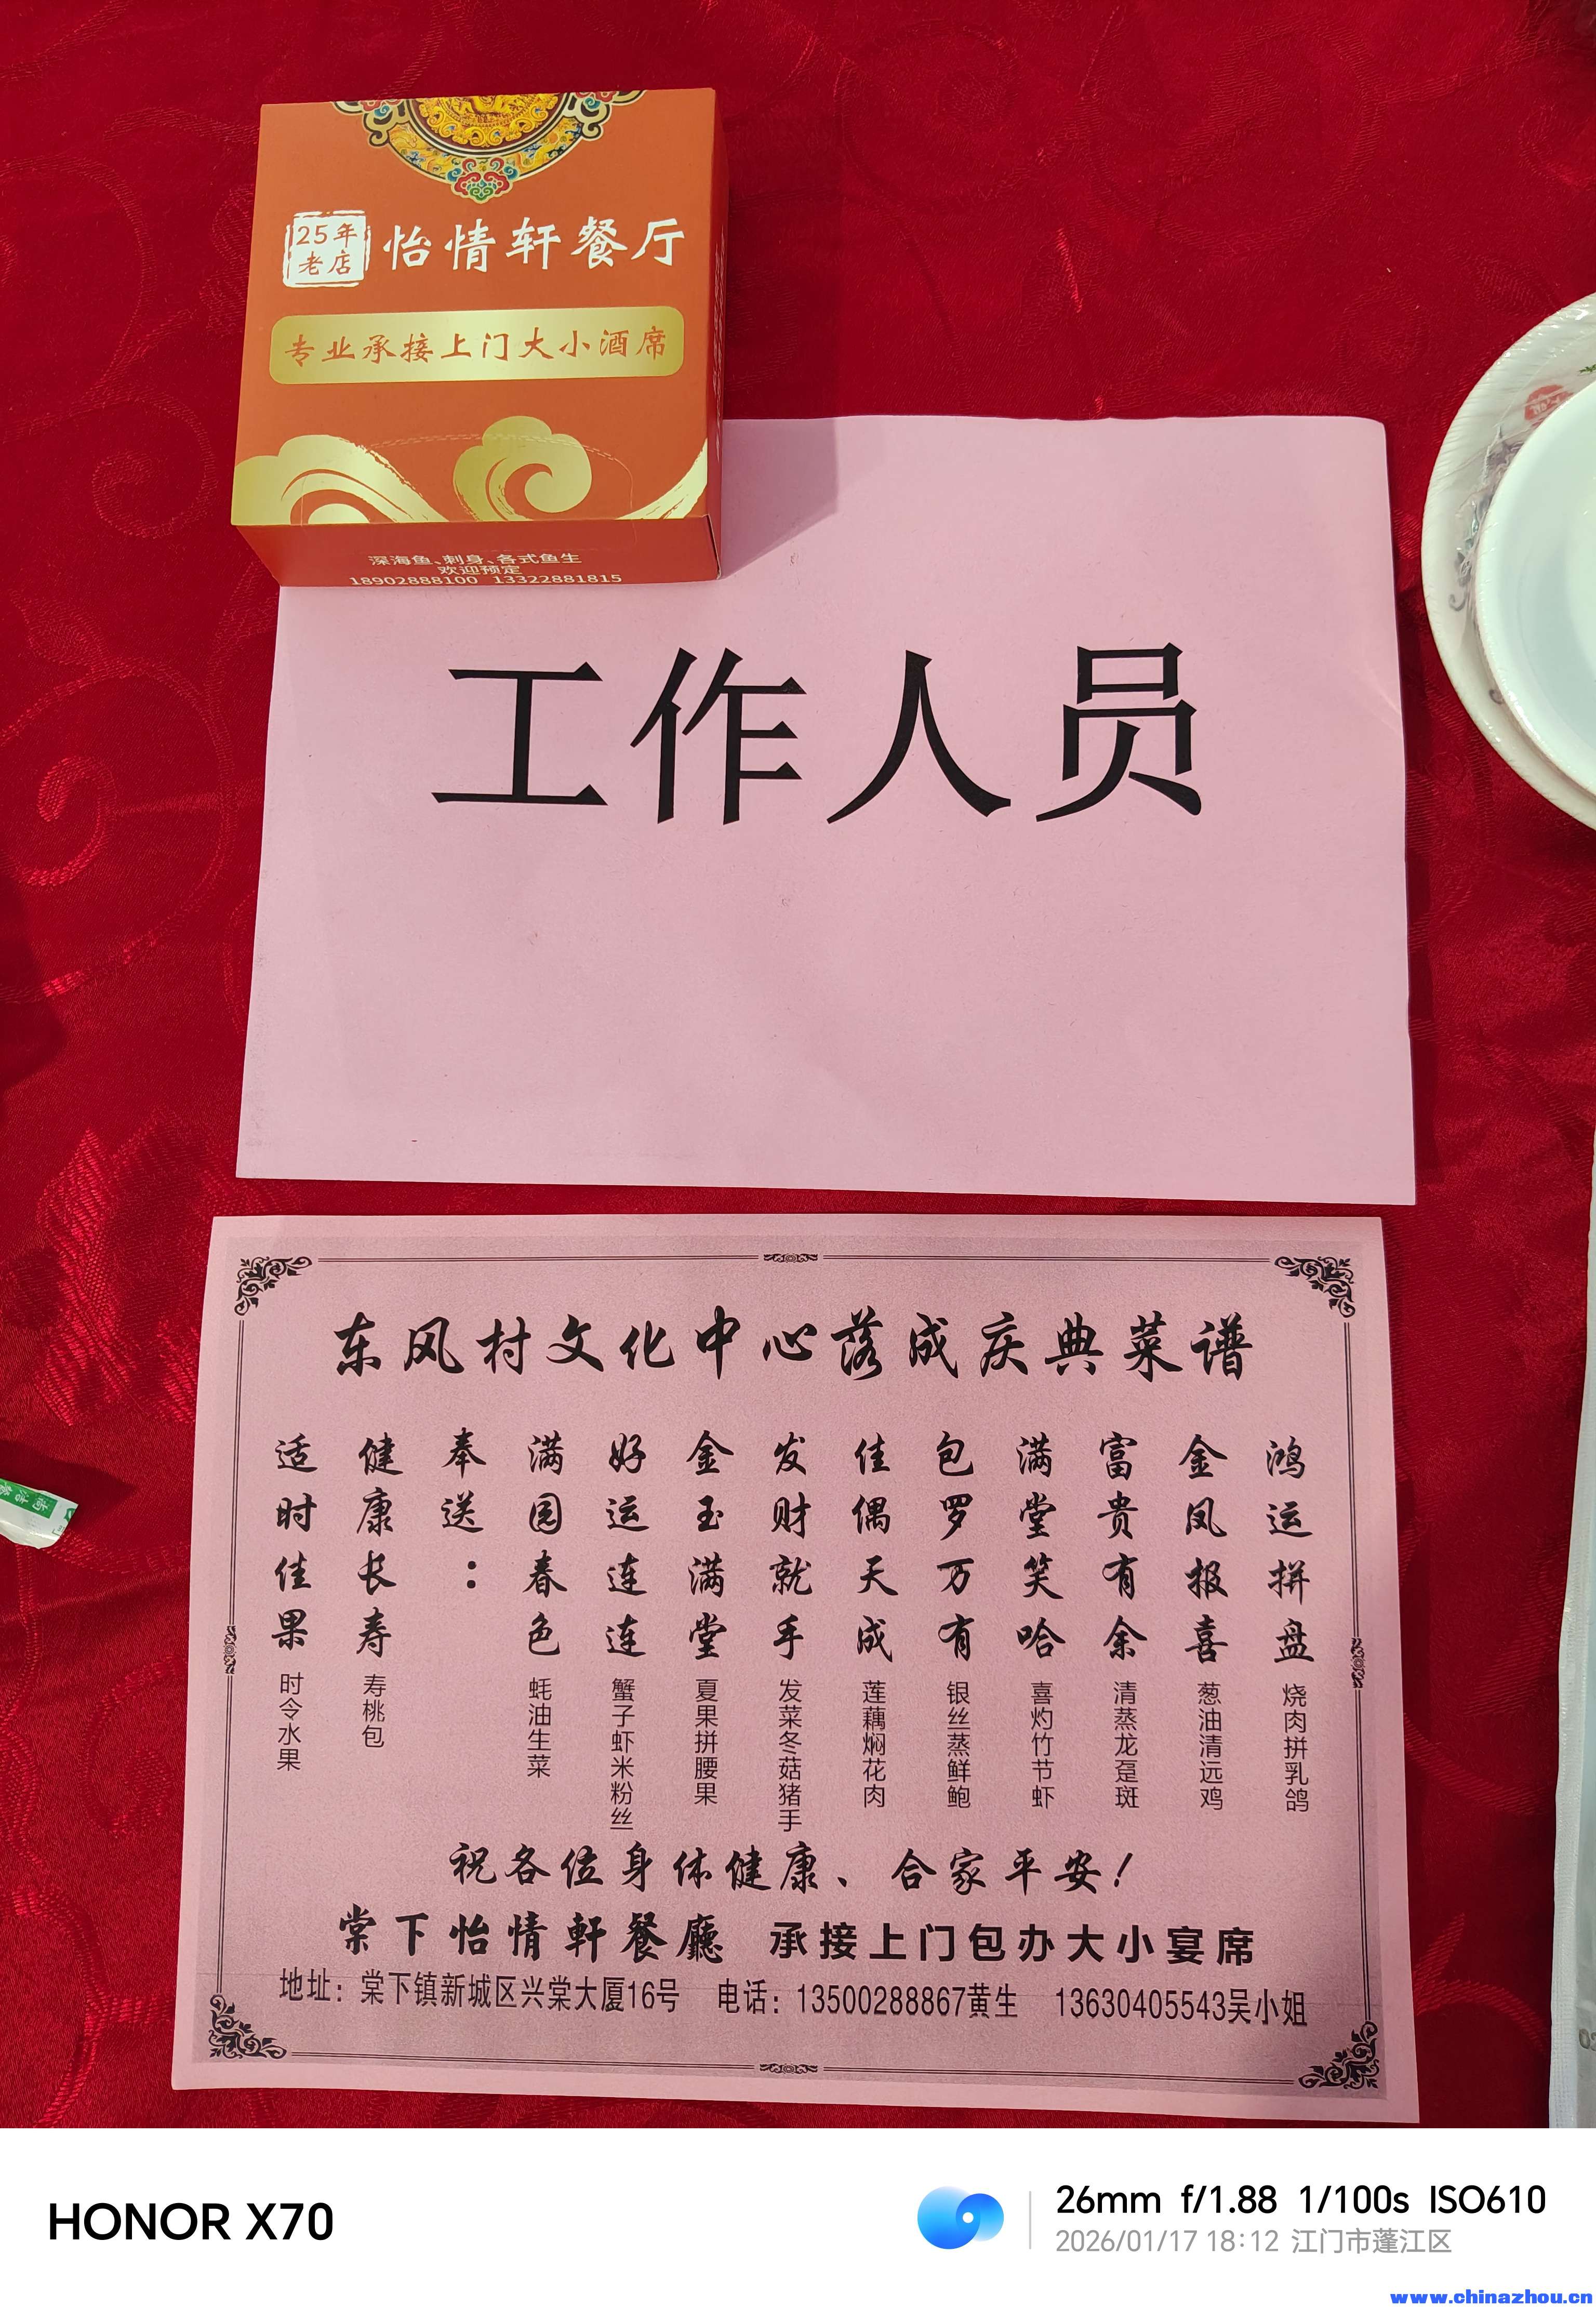 25年
老店
怡情轩餐厅
专业承接上门大小酒席
深海鱼、刺身、各式鱼生
欢迎预定
18902888100 13322881815
工作人员
东风村文化中心落成庆典菜谱
鸿运拼盘 烧肉拼乳鸽
金凤报喜 葱油清远鸡
富贵有余 清蒸龙趸斑
满堂笑哈 喜灼竹节虾
包罗万有 银丝蒸鲜鲍
佳偶天成 莲藕焖花肉
发财就手 发菜冬菇猪手
金玉满堂 夏果拼腰果
好运连连 蟹子虾米粉丝
满园春色 蚝油生菜
奉送：
健康长寿 寿桃包
适时佳果 时令水果
祝各位身体健康、合家平安！
棠下怡情軒餐廳 承接上门包办大小宴席
地址：棠下镇新城区兴棠大厦16号 电话：13500288867黄生 13630405543吴小姐
HONOR X70
26mm f/1.88 1/100s ISO610
2026/01/17 18:12 江门市蓬江区
www.chinazhou.cn